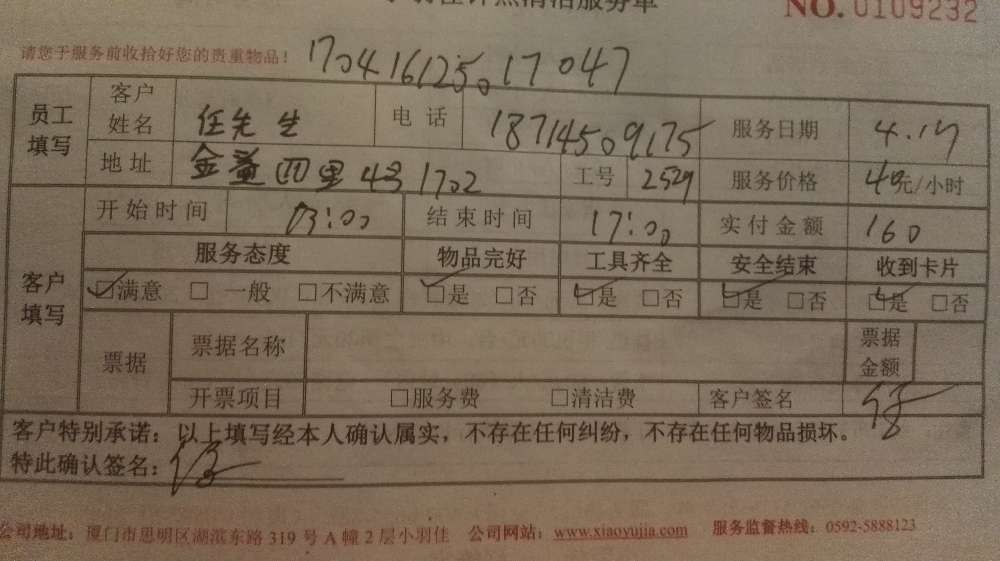 计点清洁服务单
NO.0109232
请您于服务前收拾好您的贵重物品！ 17041612501704​7
员工填写 客户姓名 任先生 电话 18714509175 服务日期 4.17
地址 金益四里4号1702 工号 2529 服务价格 40元/小时
客户填写 开始时间 13:00 结束时间 17:00 实付金额 160
服务态度 物品完好 工具齐全 安全结束 收到卡片
☑满意 □一般 □不满意 ☑是 □否 ☑是 □否 ☑是 □否 ☑是 □否
票据 票据名称 票据金额
开票项目 □服务费 □清洁费 客户签名 任
客户特别承诺：以上填写经本人确认属实，不存在任何纠纷，不存在任何物品损坏。
特此确认签名：任
公司地址：厦门市思明区湖滨东路319号A幢2层小羽佳 公司网站：www.xiaoyujia.com 服务监督热线：0592-5888123